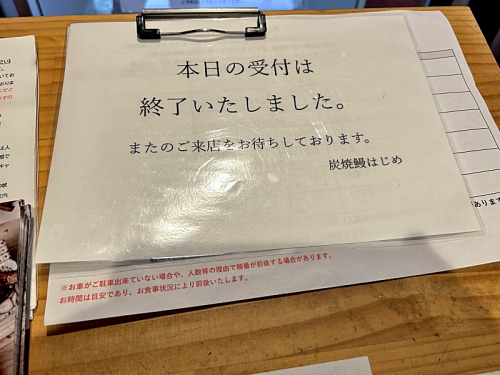 本日の受付は
終了いたしました。
またのご来店をお待ちしております。
炭焼鰻はじめ
※お車がご駐車出来ていない場合や、人数等の理由で順番が前後する場合があります。
お時間は目安であり、お食事状況により前後いたします。